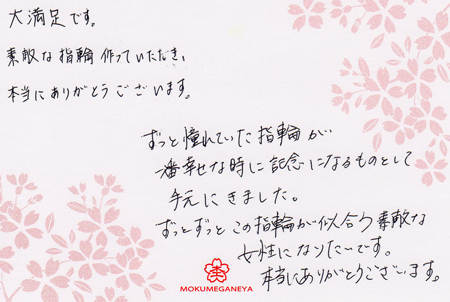 大満足です。
素敵な指輪作っていただき、
本当にありがとうございます。
ずっと憧れていた指輪が
一番幸せな時に記念になるものとして
手元にきました。
ずっとずっとこの指輪が似合う素敵な
女性になりたいです。
本当にありがとうございます。
MOKUMEGANEYA